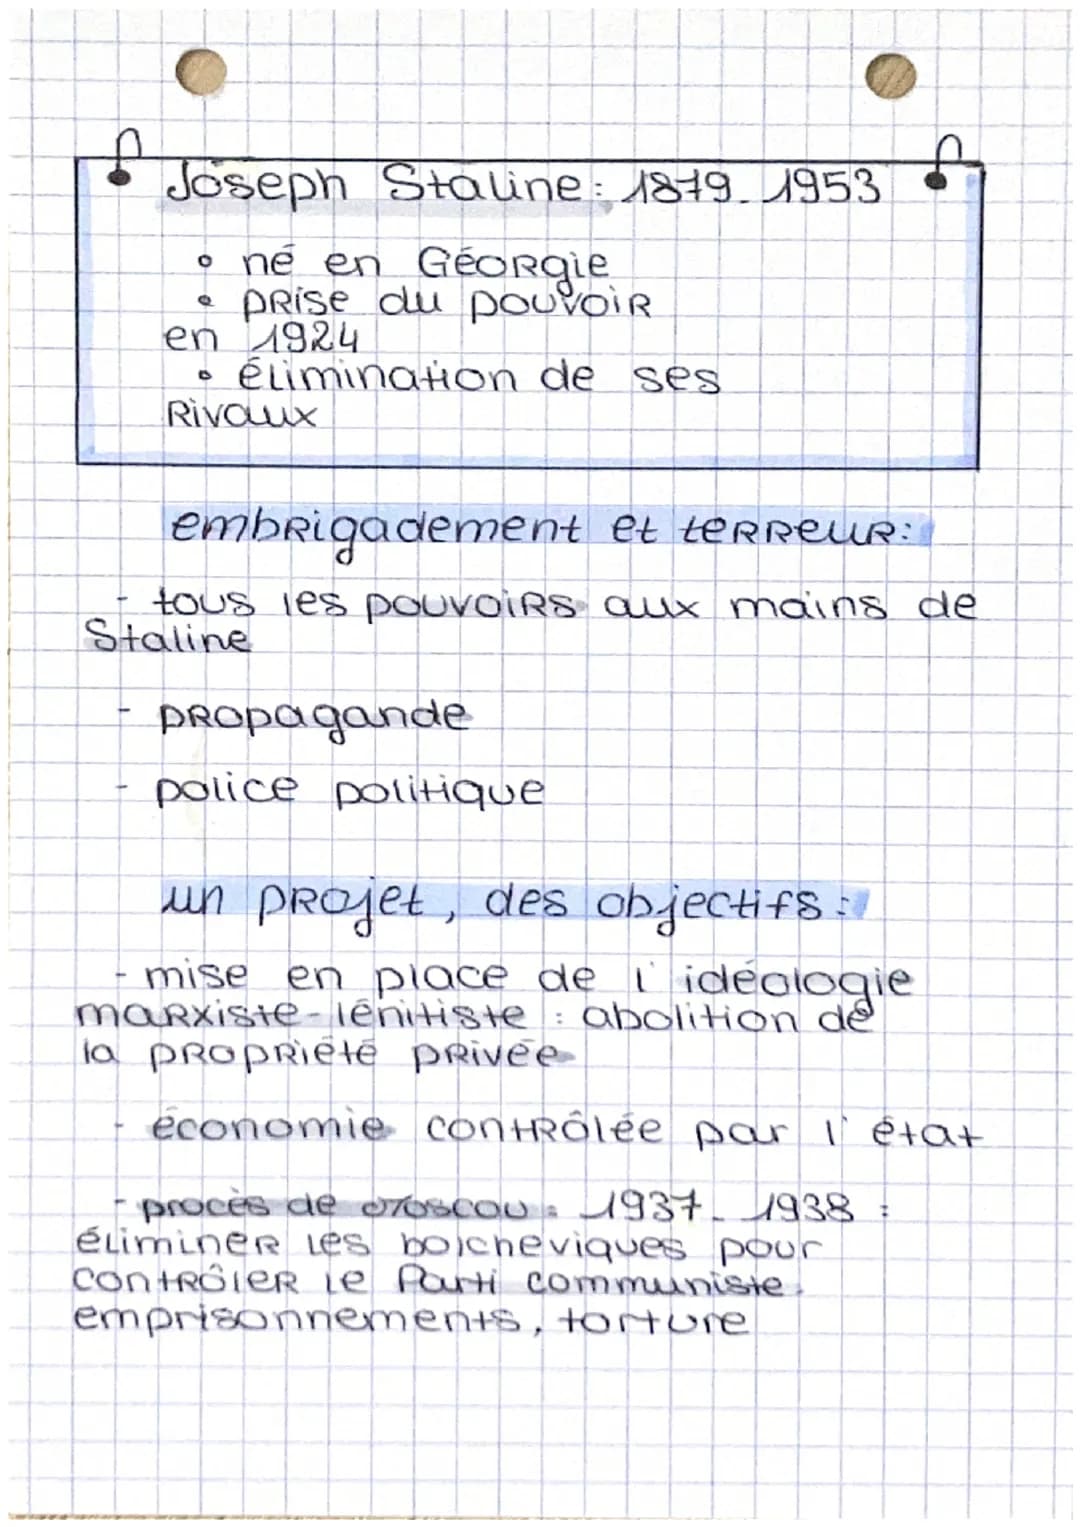 Joseph Staline: 1879_1953
• né en Géorgie
• prise du pouvoir
en 1924
• élimination de ses
Rivaux
embrigadement et terreur:
- tous les pouvoirs aux mains de
Staline
- propagande
- police politique
un projet, des objectifs:
- mise en place de l'idéologie
marxiste-lénitiste: abolition de
la propriété privée
- économie contrôlée par l'état
- procès de Moscou: 1937_1938:
éliminer les bolcheviques pour
contrôler le Parti communiste.
emprisonnements, torture